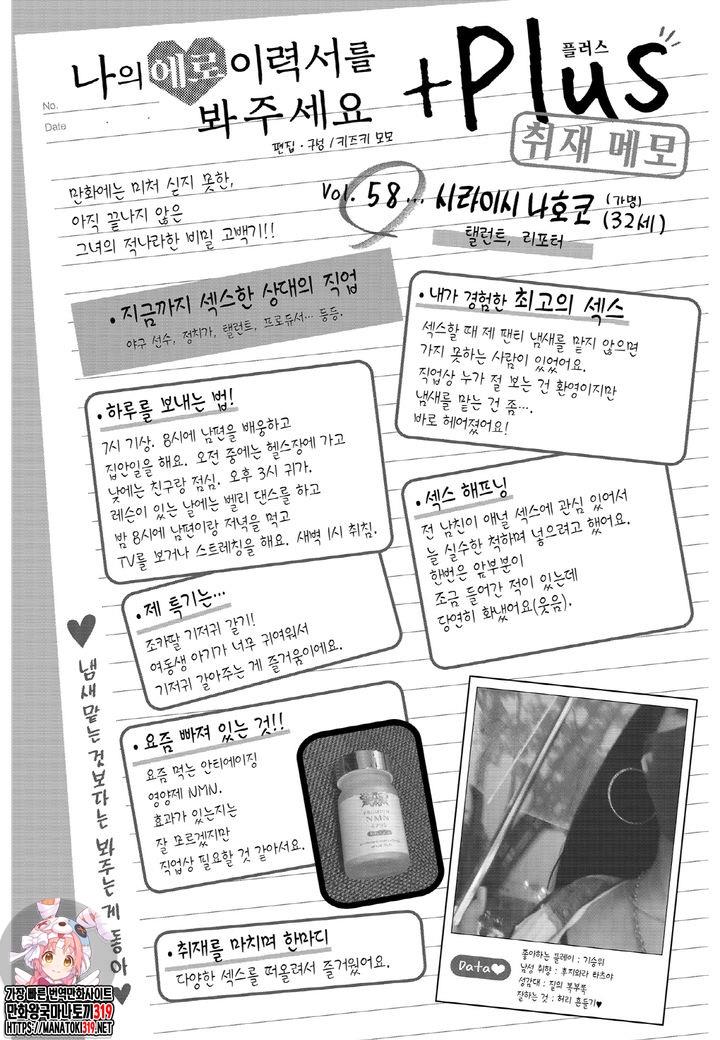 나의 에로 이력서를
봐주세요
+Plus
플러스
취재 메모
No.
Date
편집·구성/키즈키 모모
만화에는 미처 싣지 못한,
아직 끝나지 않은
그녀의 적나라한 비밀 고백기!!
Vol. 58... 시라이시 나호코 (가명)
(32세)
탤런트, 리포터
•지금까지 섹스한 상대의 직업
야구 선수, 정치가, 탤런트, 프로듀서… 등등.
•내가 경험한 최고의 섹스
섹스할 때 제 팬티 냄새를 맡지 않으면
가지 못하는 사람이 있었어요.
직업상 누가 절 보는 건 환영이지만
냄새를 맡는 건 좀….
바로 헤어졌어요!
•하루를 보내는 법!
7시 기상. 8시에 남편을 배웅하고
집안일을 해요. 오전 중에는 헬스장에 가고
낮에는 친구랑 점심. 오후 3시 귀가.
레슨이 있는 날에는 벨리 댄스를 하고
밤 8시에 남편이랑 저녁을 먹고
TV를 보거나 스트레칭을 해요. 새벽 1시 취침.
•섹스 해프닝
전 남친이 애널 섹스에 관심 있어서
늘 실수한 척하며 넣으려고 했어요.
한번은 앞부분이
조금 들어간 적이 있는데
당연히 화냈어요(웃음).
•제 특기는…
조카딸 기저귀 갈기!
여동생 아기가 너무 귀여워서
기저귀 갈아주는 게 즐거움이에요.
•요즘 빠져 있는 것!!
요즘 먹는 안티에이징
영양제 NMN.
효과가 있는지는
잘 모르겠지만
직업상 필요할 것 같아서요.
PREMIUM
NMN
•취재를 마치며 한마디
다양한 섹스를 떠올려서 즐거웠어요.
냄새 맡는 것보다는 봐주는 게 좋아
Data
좋아하는 플레이 : 기승위
남성 취향 : 후지와라 타츠야
성감대 : 질의 복부쪽
잘하는 것 : 허리 흔들기♥
가장 빠른 번역만화사이트
만화왕국마나토끼319
HTTPS://MANATOKI319.NET